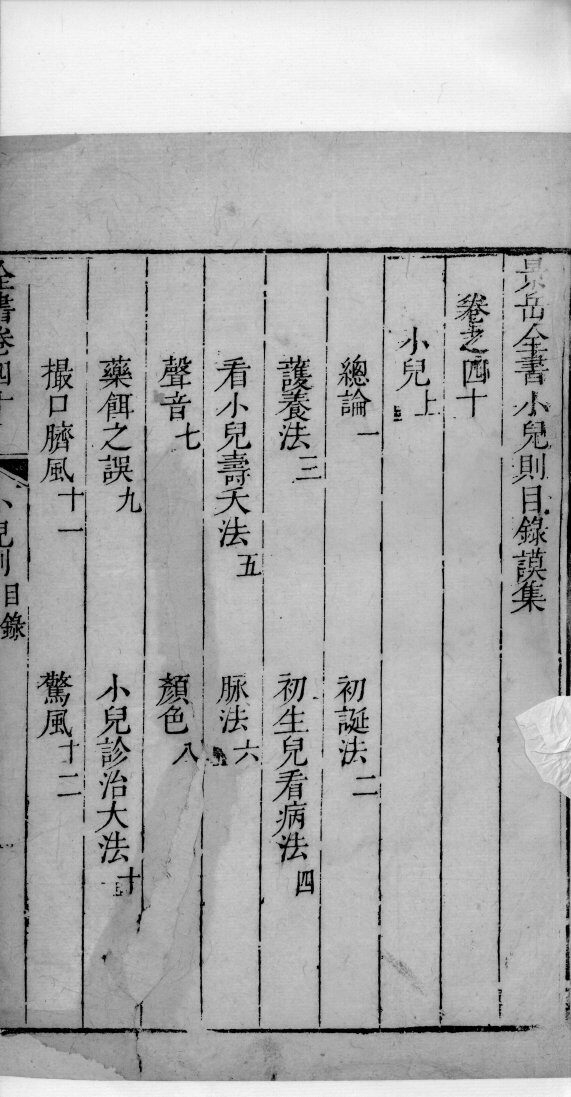 景岳全書小兒則目錄謨集
卷之四十
小兒上
總論一 初誕法二
護養法三 初生兒看病法四
看小兒壽夭法五 脉法六
聲音七 顏色八
藥餌之誤九 小兒診治大法十
撮口臍風十一 驚風十二
全書卷四十 小兒則目錄